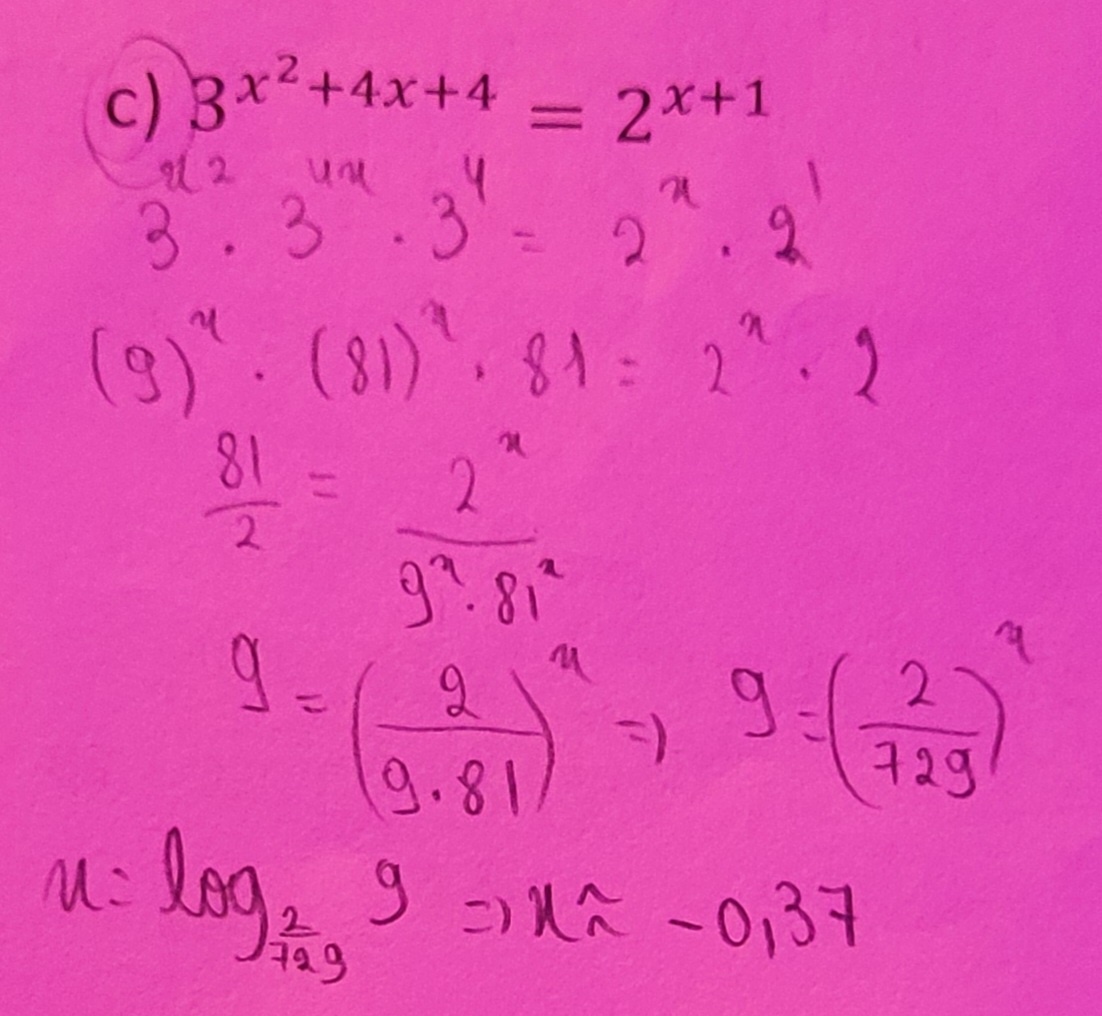 c) 3^{x^2+4x+4} = 2^{x+1}
3^{x2} · 3^{4x} · 3^4 = 2^x · 2^1
(9)^x · (81)^x · 81 = 2^x · 2
81/2 = 2^x/(9^x · 81^x)
9 = (2/(9·81))^x => 9 = (2/729)^x
x = log_{2/729} 9 => x ≈ -0,37